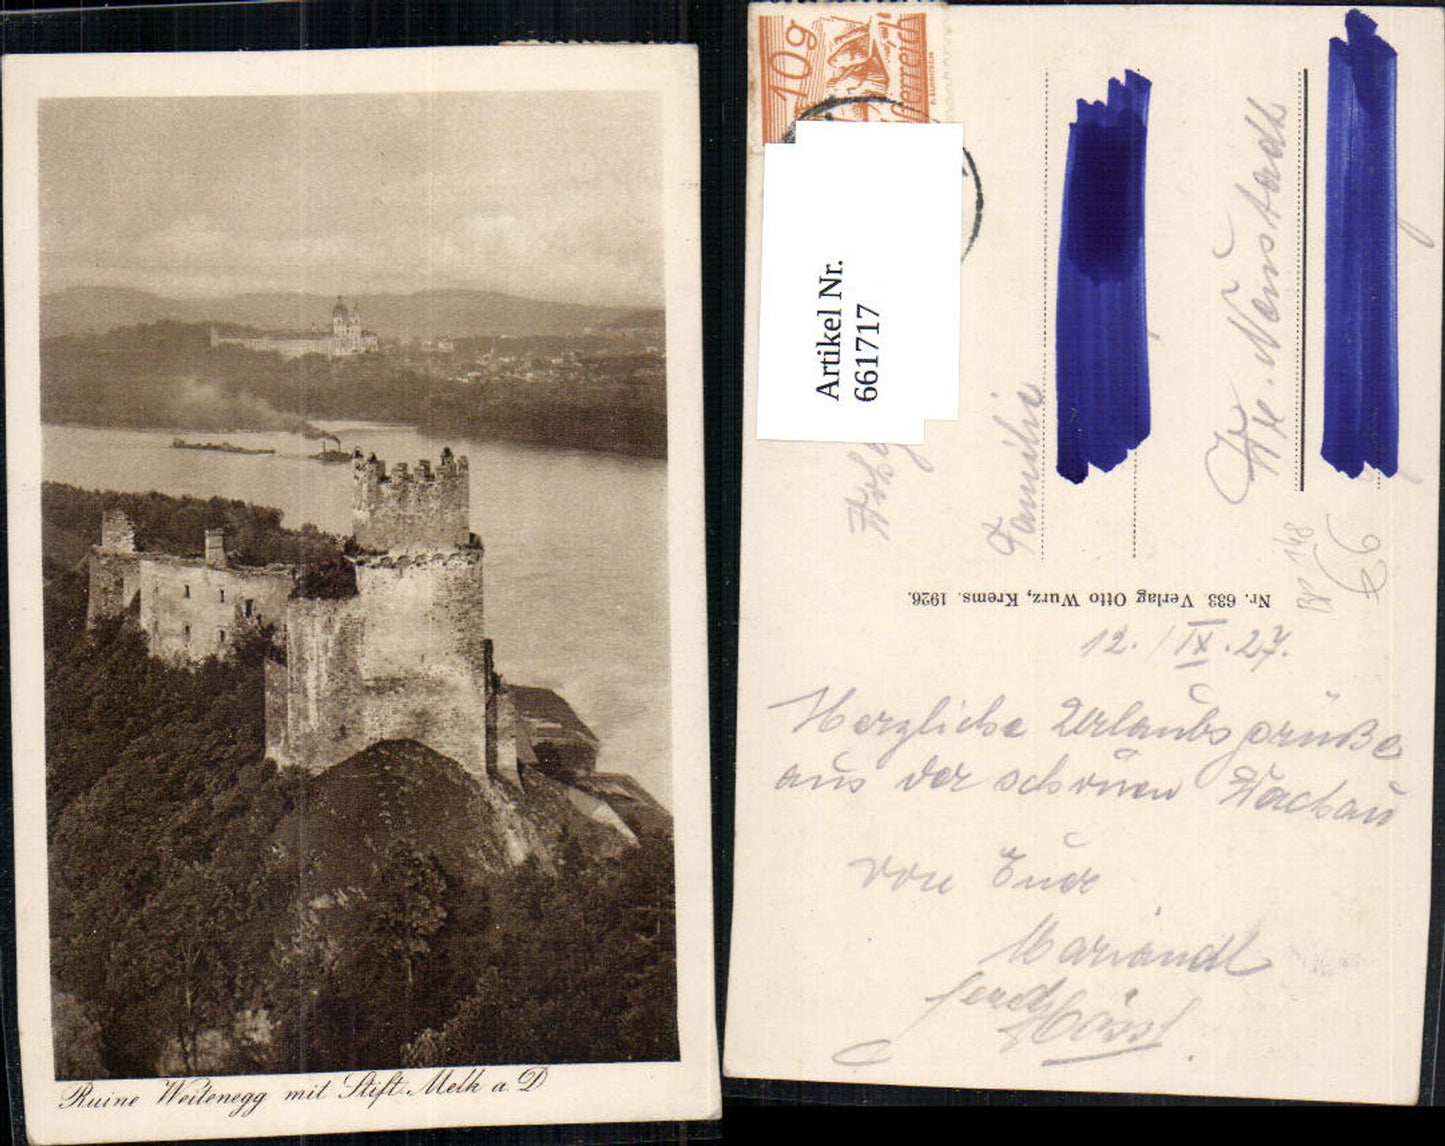 Ruine Weitenegg mit Stift Melk a. D
10g
Österreich
Artikel Nr.
661717
Familie
Wr. Neustadt
Nr. 633. Verlag Otto Wurz, Krems. 1926.
148
66
12. / IX. 27.
Herzliche Urlaubsgrüße
aus der schönen Wachau
von Euer
Mariandl